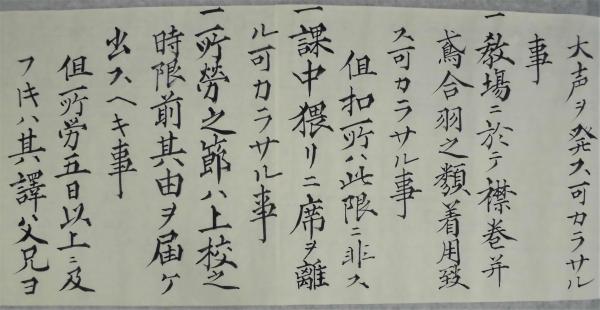 大声ヲ発ス可カラサル
事
一教場ニ於テ襟巻并
鳶合羽之類着用致
ス可カラサル事
但扣所ハ此限ニ非ス
一課中猥リニ席ヲ離
ル可カラサル事
一所労之節ハ上校之
時限前其由ヲ届ケ
出スヘキ事
但所労五日以上ニ及
フ時ハ其譯父兄ヨ